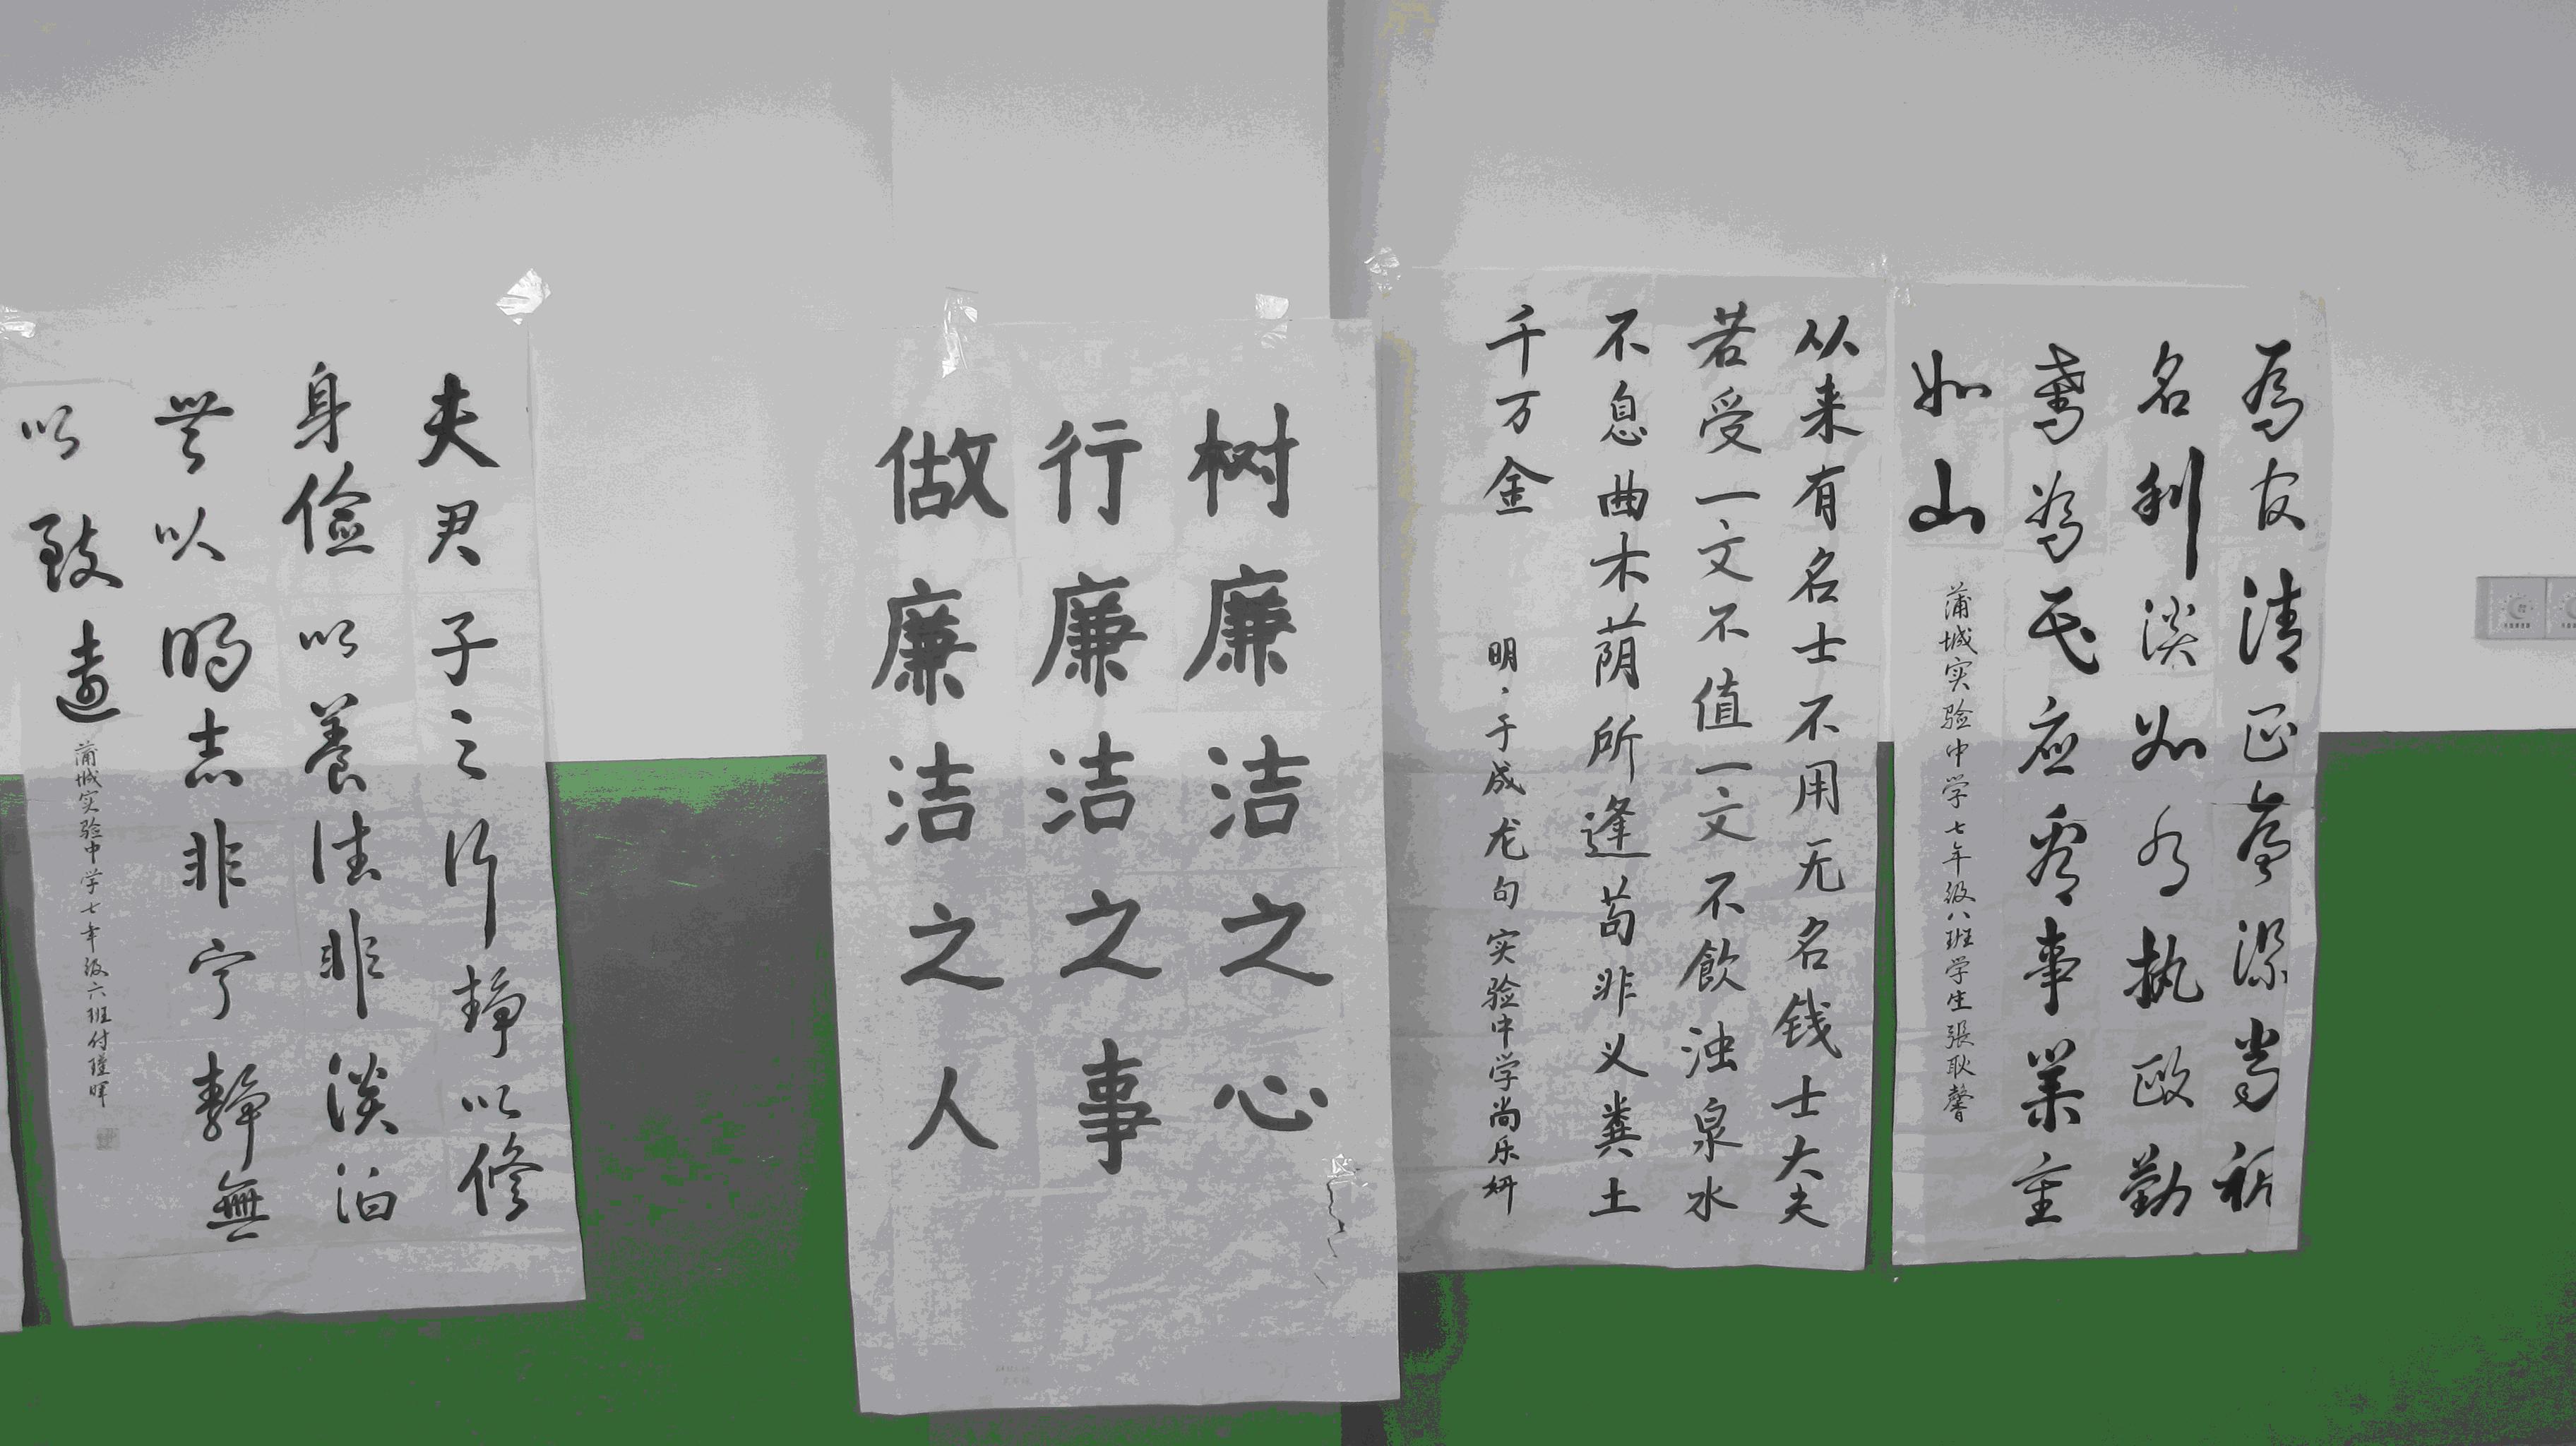 為官清正廉潔當視
名利淡如水執政勤
奮為民應看事業重
如山
蒲城实验中学七年级八班学生張耿馨
从来有名士不用无名钱士大夫
若受一文不值一文不飲浊泉水
不息曲木荫所逢苟非义粪土
千万金
明·于成龙句实验中学尚乐妍
树廉洁之心
行廉洁之事
做廉洁之人
夫君子之行静以修
身儉以養德非淡泊
無以明志非宁静無
以致遠
蒲城实验中学七年级六班付瑾晖